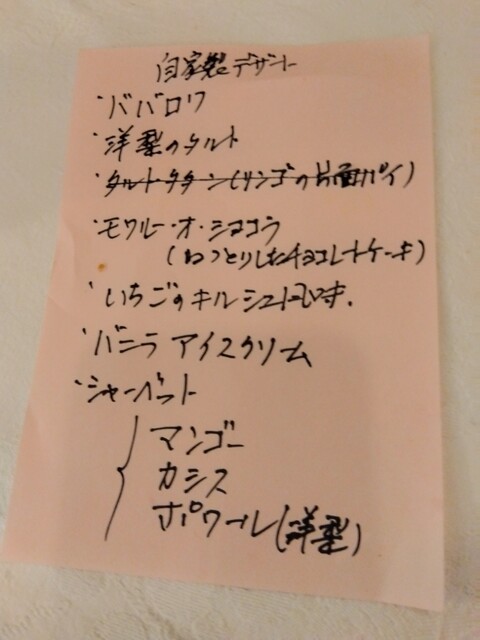 自家製デザート
・ババロワ
・洋梨のタルト
・タルトタタン(リンゴの片面パイ)
・モワルー・オ・ショコラ
(ねっとりしたチョコレートケーキ)
・いちごのキルシュ
・バニラ アイスクリーム
・シャーベット
マンゴー
カシス
ポワール(洋梨)